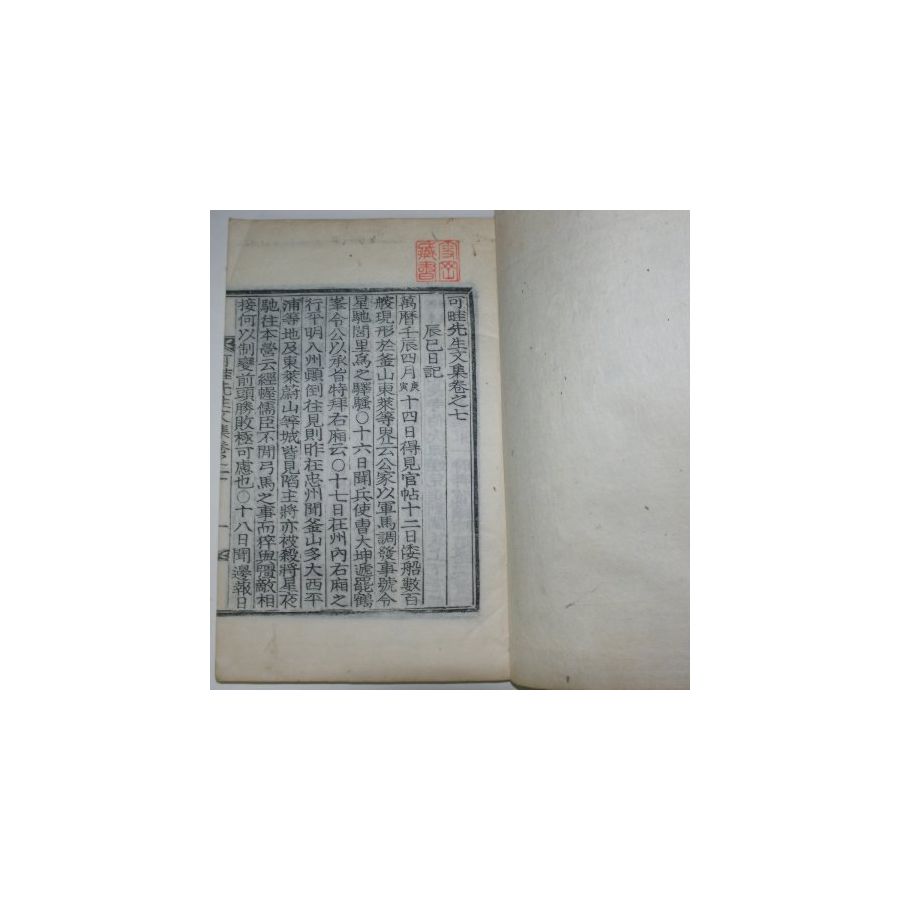 可畦先生文集卷之七
辰巳日記
萬曆壬辰四月庚寅十四日得見官帖十二日倭船數百
艘現形於釜山東萊等界云公家以軍馬調發事號令
星馳閭里爲之驛騷○十六日聞兵使曺大坤遞罷鶴
峯令公以承旨特拜右廂云○十七日在州內右廂之
行平明入州顚倒往見則昨在忠州聞釜山多大西平
浦等地及東萊蔚山等城皆見陷主將亦被殺將星夜
馳往本營云經幄儒臣不閒弓馬之事而猝與勍敵相
接何以制變前頭勝敗極可慮也○十八日聞邊報日
可畦先生文集卷之
一
藏書